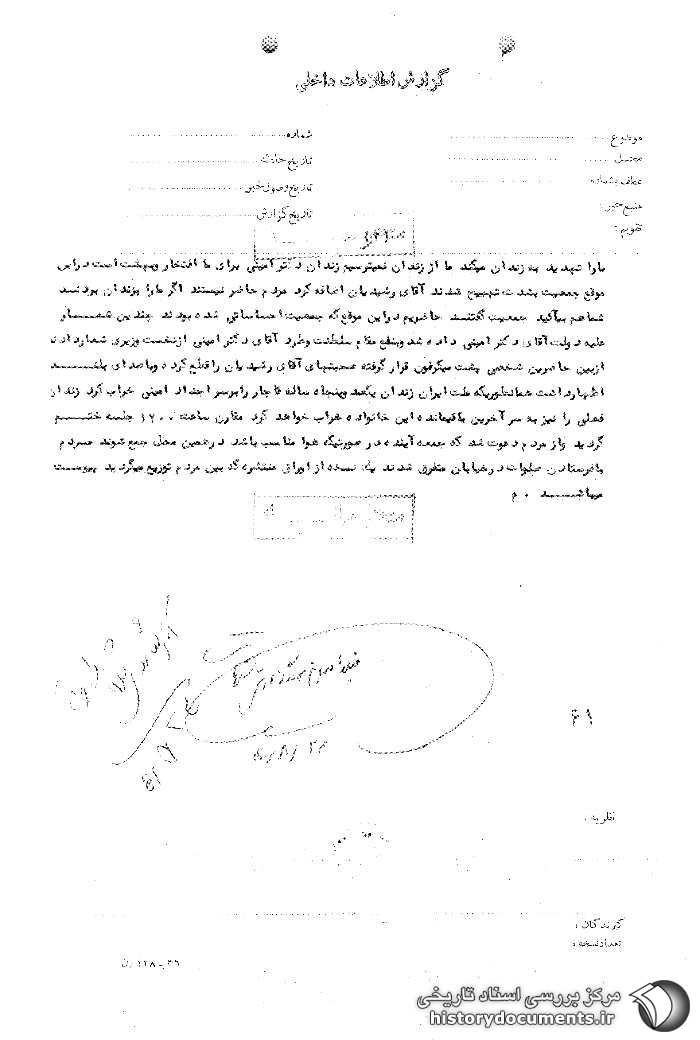 گزارش اطلاعات داخلی
موضوع
شماره
محل
تاریخ حادثه
عطف بشماره
تاریخ وصول خبر
منبع خبر :
تاریخ گزارش
تقویم :
مارا تهدید به زندان میکند ما از زندان نمیترسیم زندان دکتر امینی برای ما افتخار وبهشت است دراین
موقع جمعیت بشدت تهییج شدند آقای رشیدیان اضافه کرد مردم حاضر نیستند اگر مارا بزندان بردند
شما هم بیائید جمعیت گفتند حاضریم دراین موقع که جمعیت احساساتی شده بودند چندین شعار
علیه دولت آقای دکتر امینی داده شد وبنفع مقام سلطنت وطرد آقای دکتر امینی ازنخست وزیری شعاردادند
ازبین حاضرین شخصی پشت میکرفون قرار گرفته صحبتهای آقای رشیدیان را قطع کرد وباصدای بلند
اظهارداشت همانطوریکه ملت ایران زندان یکصد وپنجاه ساله قاجار رابرسر اجداد امینی خراب کرد زندان
فعلی را نیز به سر آخرین باقیمانده این خانواده خراب خواهد کرد مقارن ساعت ۱۲۰۰ جلسه ختم
گردید واز مردم دعوت شد که جمعه آینده در صورتیکه هوا مناسب باشد درهمین محل جمع شوند مردم
بافرستادن صلوات درخیابان متفرق شدند یک نسخه از اوراق منتشره که بین مردم توزیع میگردید پیوست
میباشد . م
۶۱
نظریه :
گیرندگان :
تعداد نسخه :
مرکز بررسی اسناد تاریخی
historydocuments.ir